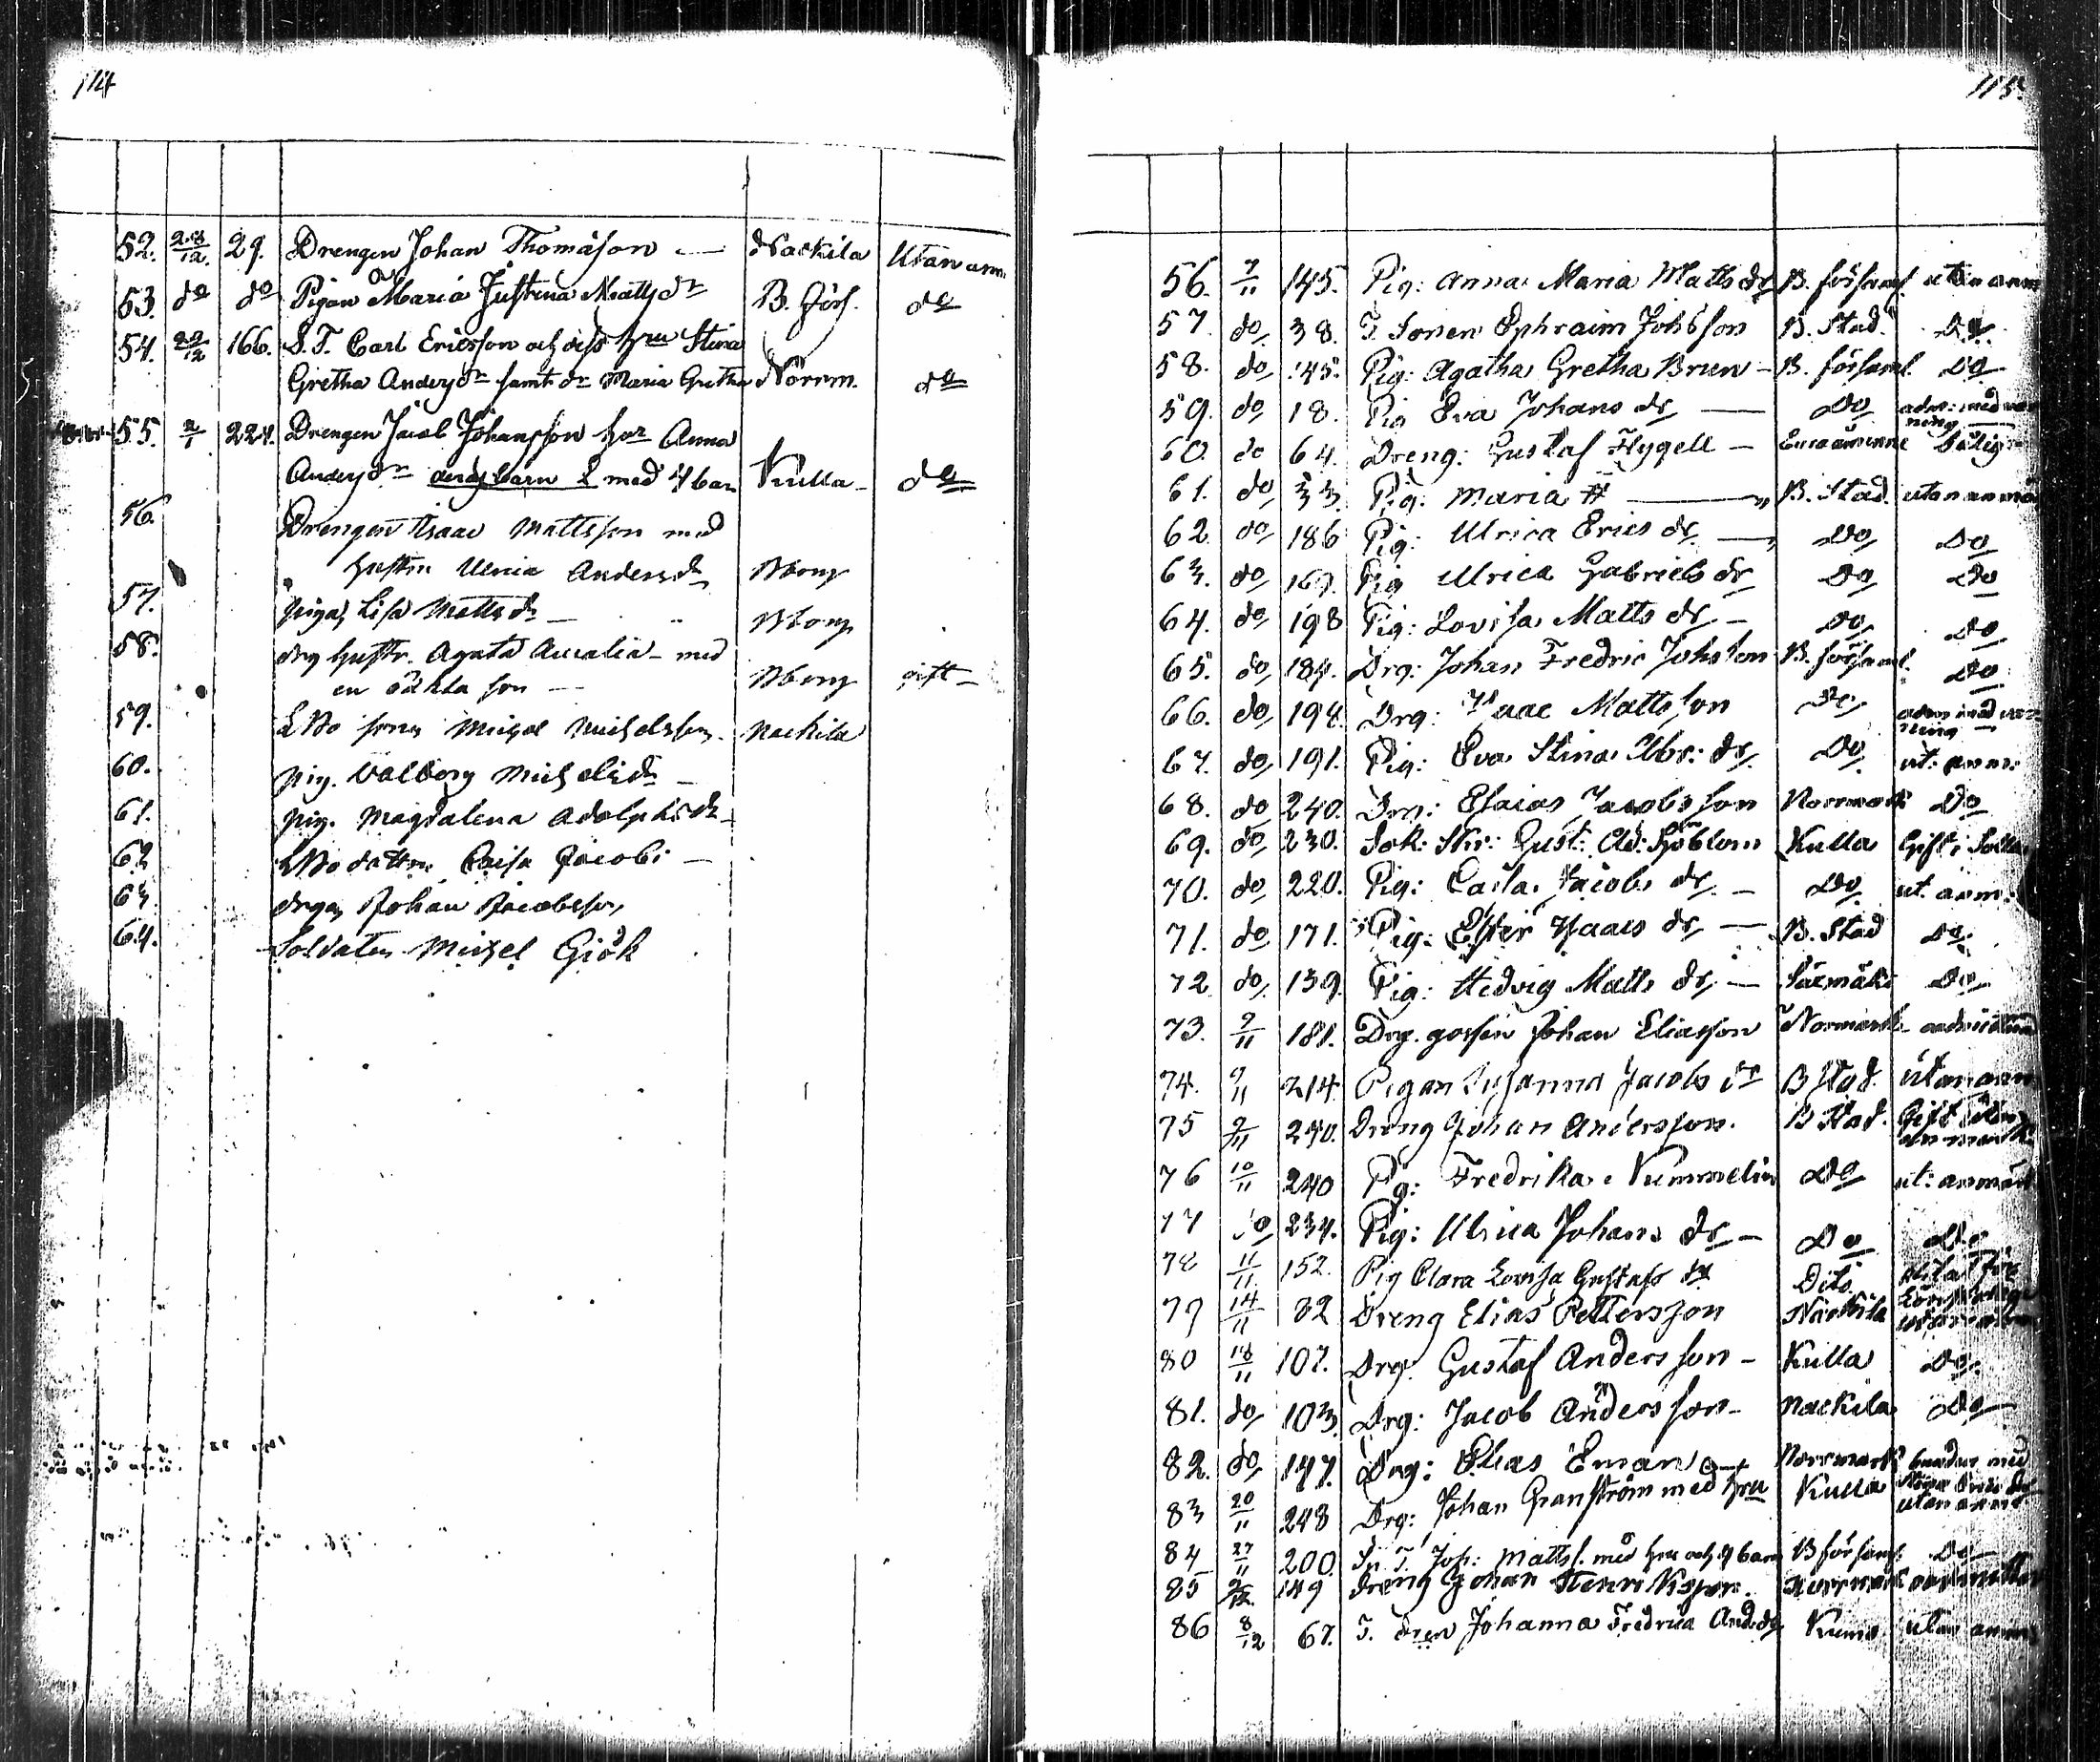 114
52. 28/12. 29. Drengen Johan Thomasson — Nackila Utan anm
53. do do Pigan Maria Justina Mattsdr B. förs. do
54. 22/12 166. S. T. Carl Ericsson och diss hru Stina
Gretha Andersdr samt dr Maria Gretha Norrm. do
55. 2/1 224. Drengen Jacob Johansson hus Anna
Andersdr med 4 barn Kulla do
56. Drengen Isaac Mattsson med
hustru Ulrica Andersdr Bborg
57. pigan Lisa Mattsdr — Bborg
58. drg hustr. Agata Amalia — med
en oäkta son — Bborg gift —
59. sonen Michel Michelsson Nackila
60. pig. Valborg Michelsdr —
61. pig. Magdalena Adolphsdr —
62 dottren Caisa Jacobs —
63. drgen Johan Jacobsson
64. Soldaten Michel Giök
115.
56. 7/11 145. Pig: Anna Maria Matts dr B. församl. utan anm
57. do 38. T. Sonen Ephraim Johsson B. Stad. Do
58. do 145. Pig: Agatha Gretha Brun — B. församl. Do
59. do 18. Pig Eva Johans dr — Do adm: med varning
60. do 64. Dreng: Gustaf Flygell —
61. do 33. Pig: Maria — B. Stad. utan anmä
62. do 186 Pig: Ulrica Erics dr — Do Do
63. do 167. Pig Ulrica Gabriels dr Do Do
64. do 198 Pig: Lovisa Matts dr — Do Do
65. do 184. Drg: Johan Fredric Johsson B. församl. Do
66. do 194. Drg: Isaac Mattsson Do adm med varning —
67. do 191. Pig: Eva Stina Abr: dr Do ut: anm:
68. do 240. Drg: Esaias Jacobsson Norrmark Do
69. do 230. Sok: Skr: Gust: Ad: Sjöblom Kulla Gift i
70. do 220. Pig: Caisa Jacobs dr — Do ut anm:
71. do 171. Pig: Ester Isaacs dr — B. Stad Do
72. do 139. Pig: Hedvig Matts dr — Säemäki Do
73. 9/11 181. Drg. gossen Johan Eliasson Normark
74. 9/11 214 Pigan Susanna Jacobs dr B Stad. utan anm
75 9/11 240. Dreng Johan Andersson. B Stad. Gift utan anmärk
76 10/11 240 Pig: Fredrika Nummelin Do ut: anmärk
77 do 234. Pig: Ulrica Johans dr — Do Do
78 11/11 152. Pig Clara Lovisa Gustafs dr Dito
79 14/11 82 Dreng Elias Pettersson Nackila
80 18/11 107. Drg. Gustaf Andersson — Kulla Do
81. do 103 Drg: Jacob Andersson — Nackila Do
82. do 147. Drg: Elias Eman Norrmark
83 20/11 248 Drg: Johan Granström med hru Kulla utan anm
84 27/11 200. Matts. med hru och 4 barn B församl. Do
85 149 Dreng Johan Henriksson. Norrmark
86 8/12 67. T. dren Johanna Fredrica And.dr Kumo utan anm